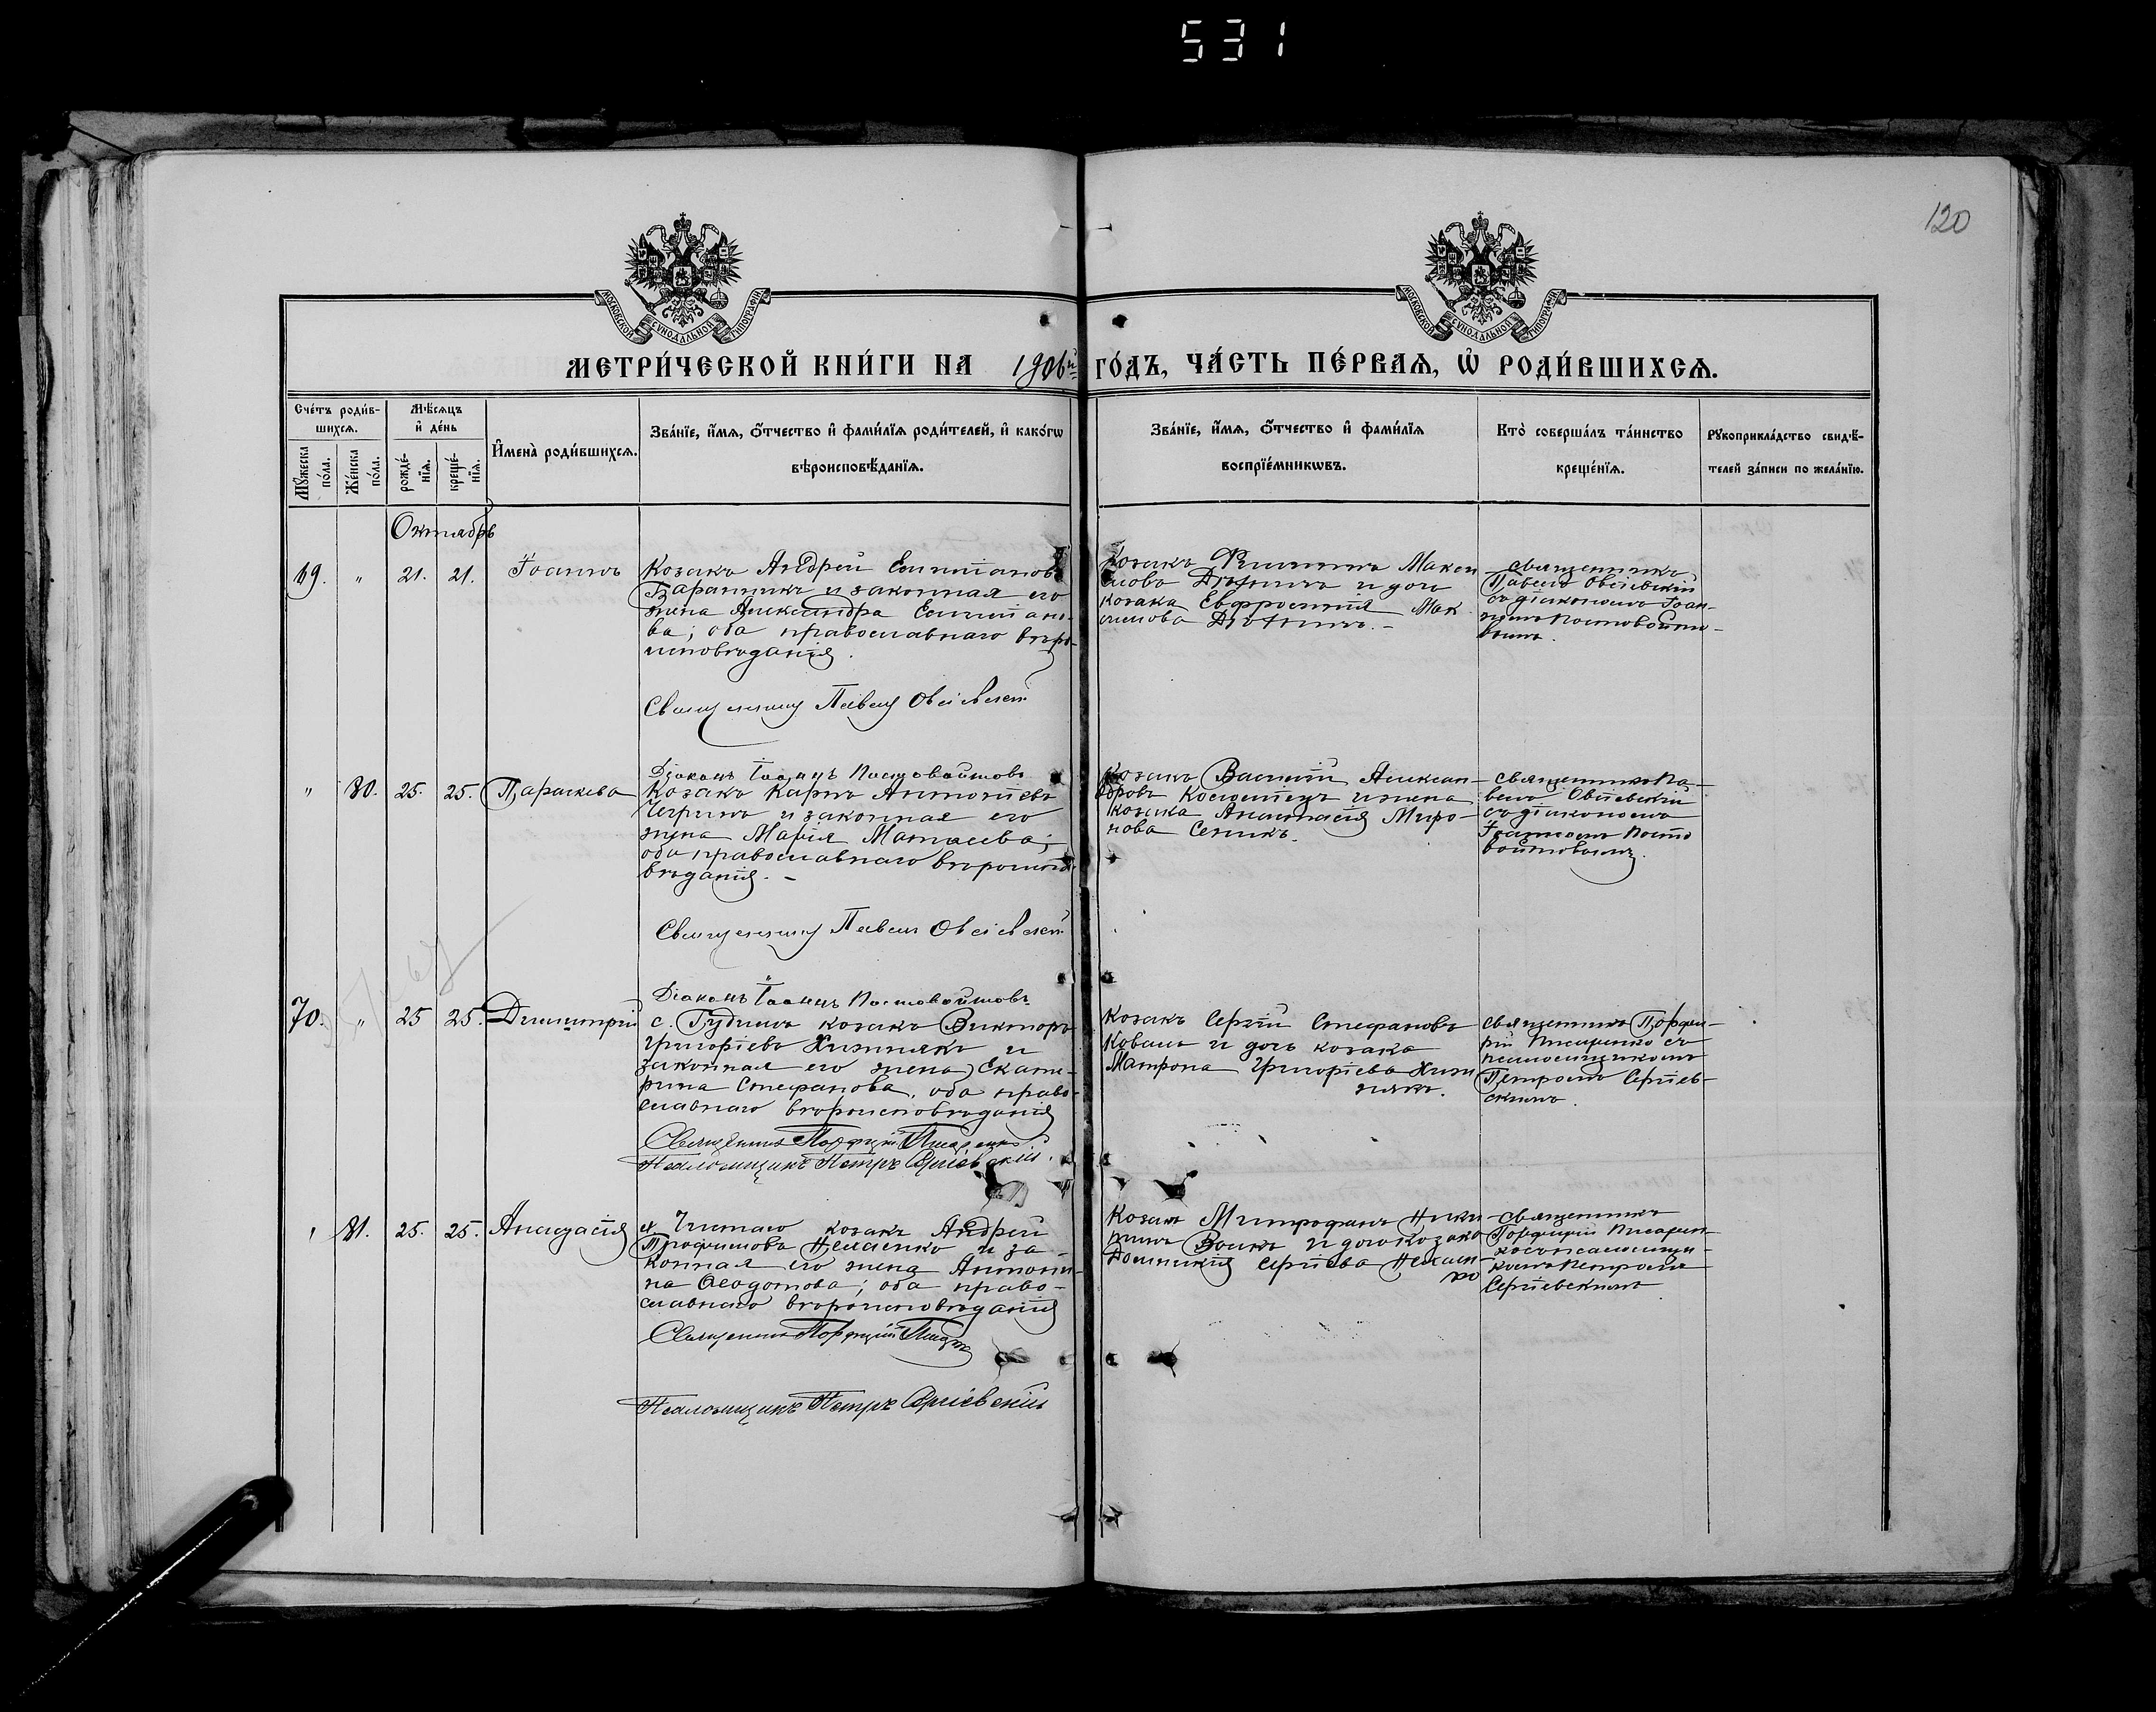 531
120
МОСКОВСКОЙ СѴНОДАЛЬНОЙ ТИПОГРАФІИ
МОСКОВСКОЙ СѴНОДАЛЬНОЙ ТИПОГРАФІИ
МЕТРИ́ЧЕСКОЙ КНИ́ГИ НА 1906й ГО́ДЪ, ЧА́СТЬ ПЕ́РВАѦ, Ѡ҆ РОДИ́ВШИХСѦ.
Сче́тъ роди́в-
шихсѧ.
Мꙋ́жеска по́ла.
Же́нска по́ла.
Мѣ́сѧцъ
и҆ де́нь
рожде́-
нїѧ.
креще́-
нїѧ.
И҆мена̀ роди́вшихсѧ.
Зва́нїе, и҆́мѧ, ѻ҆́тчество и҆ фами́лїѧ роди́телей, и҆ како́гѡ
вѣроисповѣ́данїѧ.
Зва́нїе, и҆́мѧ, ѻ҆́тчество и҆ фами́лїѧ
воспрїе́мникѡвъ.
Кто̀ соверша́лъ та́инство
креще́нїѧ.
Рꙋкоприкла́дство свидѣ́-
телей за́писи по жела́нїю.
Октябрь
69. " 21. 21. Іоаннъ
Козакъ Андрей
и законная его
жена Александра
ва; оба православнаго вѣро-
исповѣданія.
Священникъ Павелъ Овсіевскій
Діаконъ Іоаннъ Постовойтовъ
Козакъ Филиппъ Макси
мовъ и дочь
козака Евфросинія Мак
симова
священникъ
Павелъ Овсіевскій
съ діакономъ Іоан-
номъ Постовойто-
вымъ.
" 80. 25. 25. Параскева
Козакъ Карпъ Антоніевъ
и законная его
жена Марія
оба православнаго вѣроиспо
вѣданія. -
Священникъ Павелъ Овсіевскій
Діаконъ Іоаннъ Постовойтовъ
Козакъ Василій Алексан-
дровъ и жена
козака Анастасія Миро-
нова Сеникъ.
священникъ Па-
велъ Овсіевскій
съ діакономъ
Іоанномъ Посто
войтовымъ.
70. " 25 25. Димитрій
с. козакъ Викторъ
Григоріевъ Хижнякъ и
законная его жена Екате-
рина Стефанова, оба право-
славнаго вѣроисповѣданія
Священникъ Порфирій Писаренко
Псаломщикъ Петръ Сергіевскій.
Козакъ Сергій Стефановъ
Коваль и дочь козака
Матрона Григоріева Хиж
някъ.
священникъ Порфи-
рій Писаренко съ
псаломщикомъ
Петромъ Сергіев-
скимъ.
" 81. 25. 25. Анастасія
козакъ Андрей
Трофимовъ и за-
конная его жена Антони-
на Ѳеодотова; оба право-
славнаго вѣроисповѣданія
Священникъ Порфирій
Псаломщикъ Петръ Сергіевскій
Козакъ Митрофанъ
Волкъ и дочь козака
Сергіева
священникъ
Порфирій Писарен-
ко съ псаломщи-
комъ Петромъ
Сергіевскимъ